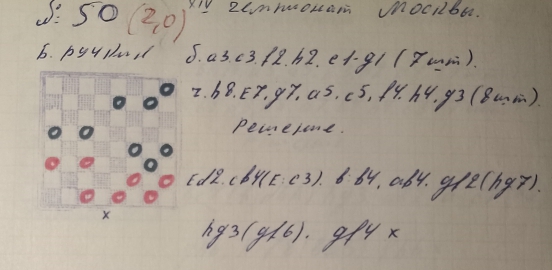 № 50 (2,0) XIV чемпионат Москвы.
Б. ручкин б. a3. c3. f2. h2. e1. g1 (7 шт).
ч. h8. E7, g7, a5, c5, f4. h4. g3 (8шт).
Решение.
Ed2. cb4 (E:c3). b:b4, ab4. gf2 (hg7).
hg3 (gf6). gf4 x
x